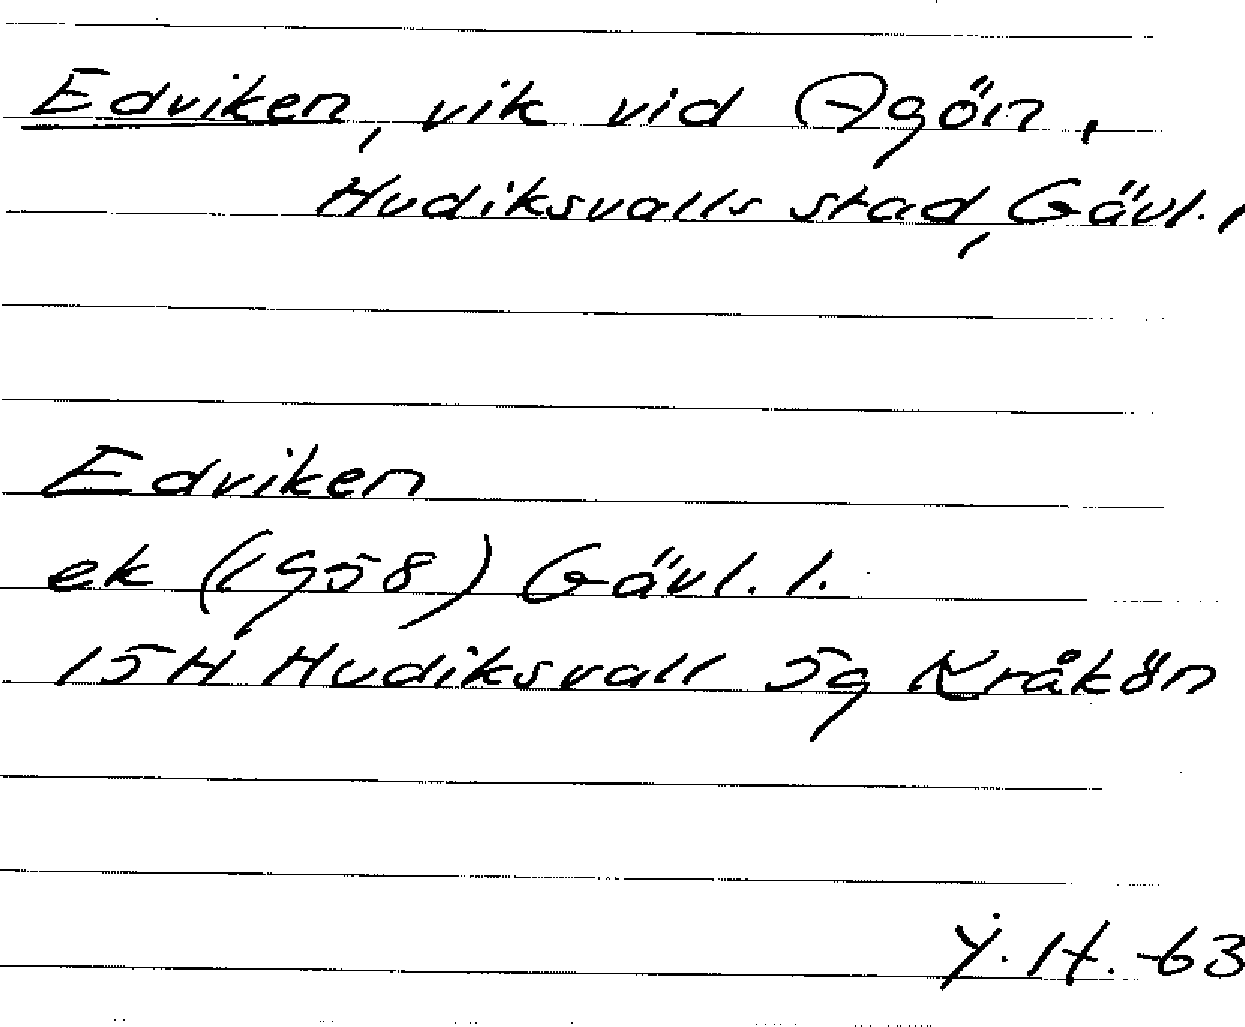 Edviken, vik vid Agön,
Hudiksvalls stad, Gävl. l
Edviken
ek (1958) Gävl. l.
15H Hudiksvall 5g Kråkön
-63